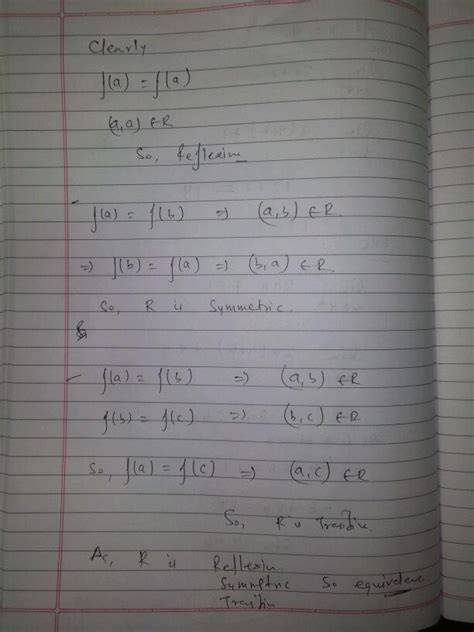 Clearly
f(a) = f(a)
(a,a) ∈ R
So, Reflexive
f(a) = f(b) => (a,b) ∈ R.
=> f(b) = f(a) => (b,a) ∈ R.
So, R is Symmetric.
f(a) = f(b) => (a,b) ∈ R
f(b) = f(c) => (b,c) ∈ R
So, f(a) = f(c) => (a,c) ∈ R
So, R is Transitive.
As, R is Reflexive
Symmetric So equivalence
Transitive